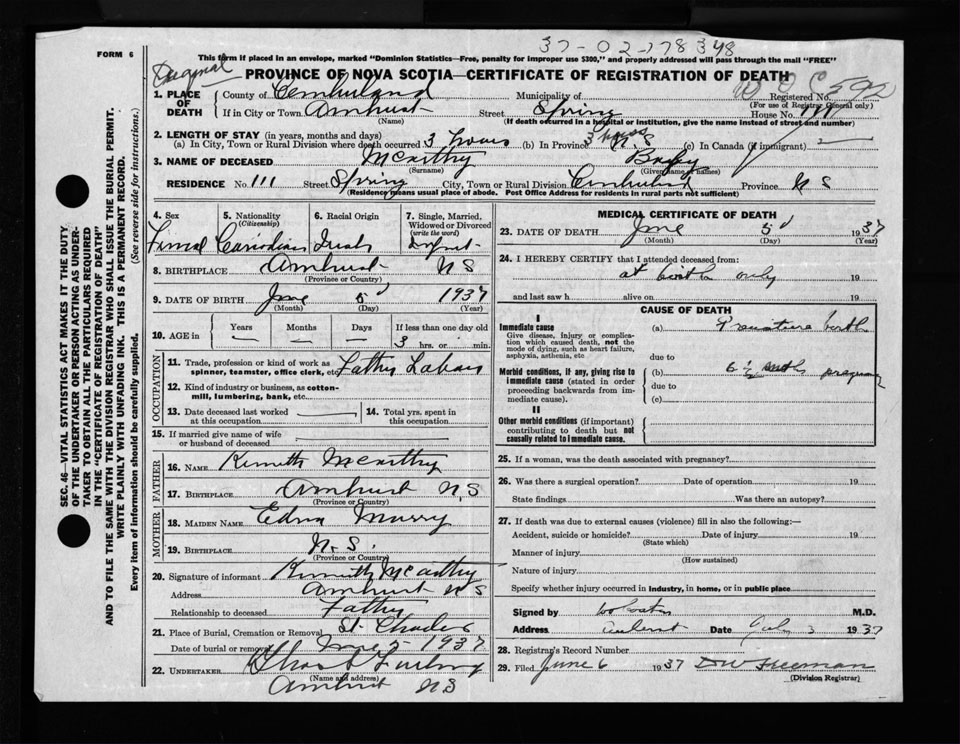 37-02-178348
FORM 6
This form if placed in an envelope, marked "Dominion Statistics—Free, penalty for improper use $300," and properly addressed will pass through the mail "FREE"
Original
PROVINCE OF NOVA SCOTIA—CERTIFICATE OF REGISTRATION OF DEATH
1. PLACE OF DEATH
County of Cumberland Municipality of Registered No. 592
(For use of Registrar General only)
If in City or Town Amherst Street Spring House No. 111
(Name) (If death occurred in a hospital or institution, give the name instead of street and number)
2. LENGTH OF STAY (in years, months and days)
(a) In City, Town or Rural Division where death occurred 3 hours (b) In Province 3 hours N.S (c) In Canada (if immigrant)
3. NAME OF DECEASED McCarthy Baby
(Surname) (Given name or names)
RESIDENCE No. 111 Street Spring City, Town or Rural Division Cumberland Province N S
(Residence means usual place of abode. Post Office Address for residents in rural parts not sufficient)
SEC. 46—VITAL STATISTICS ACT MAKES IT THE DUTY
OF THE UNDERTAKER OR PERSON ACTING AS UNDER-
TAKER TO OBTAIN ALL THE PARTICULARS REQUIRED
IN THE "CERTIFICATE OF REGISTRATION OF DEATH"
AND TO FILE THE SAME WITH THE DIVISION REGISTRAR WHO SHALL ISSUE THE BURIAL PERMIT.
WRITE PLAINLY WITH UNFADING INK. THIS IS A PERMANENT RECORD.
Every item of information should be carefully supplied. (See reverse side for instructions.)
4. Sex 5. Nationality (Citizenship) 6. Racial Origin 7. Single, Married, Widowed or Divorced (write the word)
Female Canadian Irish Infant
8. BIRTHPLACE Amherst N S
(Province or Country)
9. DATE OF BIRTH June 5 1937
(Month) (Day) (Year)
10. AGE in Years Months Days If less than one day old
3 hrs. or min.
OCCUPATION
11. Trade, profession or kind of work as spinner, teamster, office clerk, etc. Father Labour
12. Kind of industry or business, as cotton-mill, lumbering, bank, etc.
13. Date deceased last worked at this occupation
14. Total yrs. spent in this occupation
15. If married give name of wife or husband of deceased
FATHER
16. NAME Kenneth McCarthy
17. BIRTHPLACE Amherst N S
(Province or Country)
MOTHER
18. MAIDEN NAME Edna Murry
19. BIRTHPLACE N. S.
(Province or Country)
20. Signature of informant Kenneth McCarthy
Address Amherst N S
Relationship to deceased Father
21. Place of Burial, Cremation or Removal St Charles
Date of burial or removal June 5 1937
22. UNDERTAKER
(Name and address)
Amherst N S
MEDICAL CERTIFICATE OF DEATH
23. DATE OF DEATH June 5 1937
(Month) (Day) (Year)
24. I HEREBY CERTIFY that I attended deceased from:
at birth only 19
and last saw h alive on 19
CAUSE OF DEATH
I
Immediate cause
Give disease, injury or complication which caused death, not the mode of dying, such as heart failure, asphyxia, asthenia, etc
(a) Premature birth
due to
Morbid conditions, if any, giving rise to immediate cause (stated in order proceeding backwards from immediate cause).
(b) 6½ months pregnancy
due to
(c)
II
Other morbid conditions (if important) contributing to death but not causally related to immediate cause.
25. If a woman, was the death associated with pregnancy?
26. Was there a surgical operation? Date of operation 19
State findings Was there an autopsy?
27. If death was due to external causes (violence) fill in also the following:—
Accident, suicide or homicide? Date of injury 19
(State which)
Manner of injury
(How sustained)
Nature of injury
Specify whether injury occurred in industry, in home, or in public place
Signed by M.D.
Address Amherst Date July 3 1937
28. Registrar's Record Number
29. Filed June 6 1937 DW Freeman
(Division Registrar)